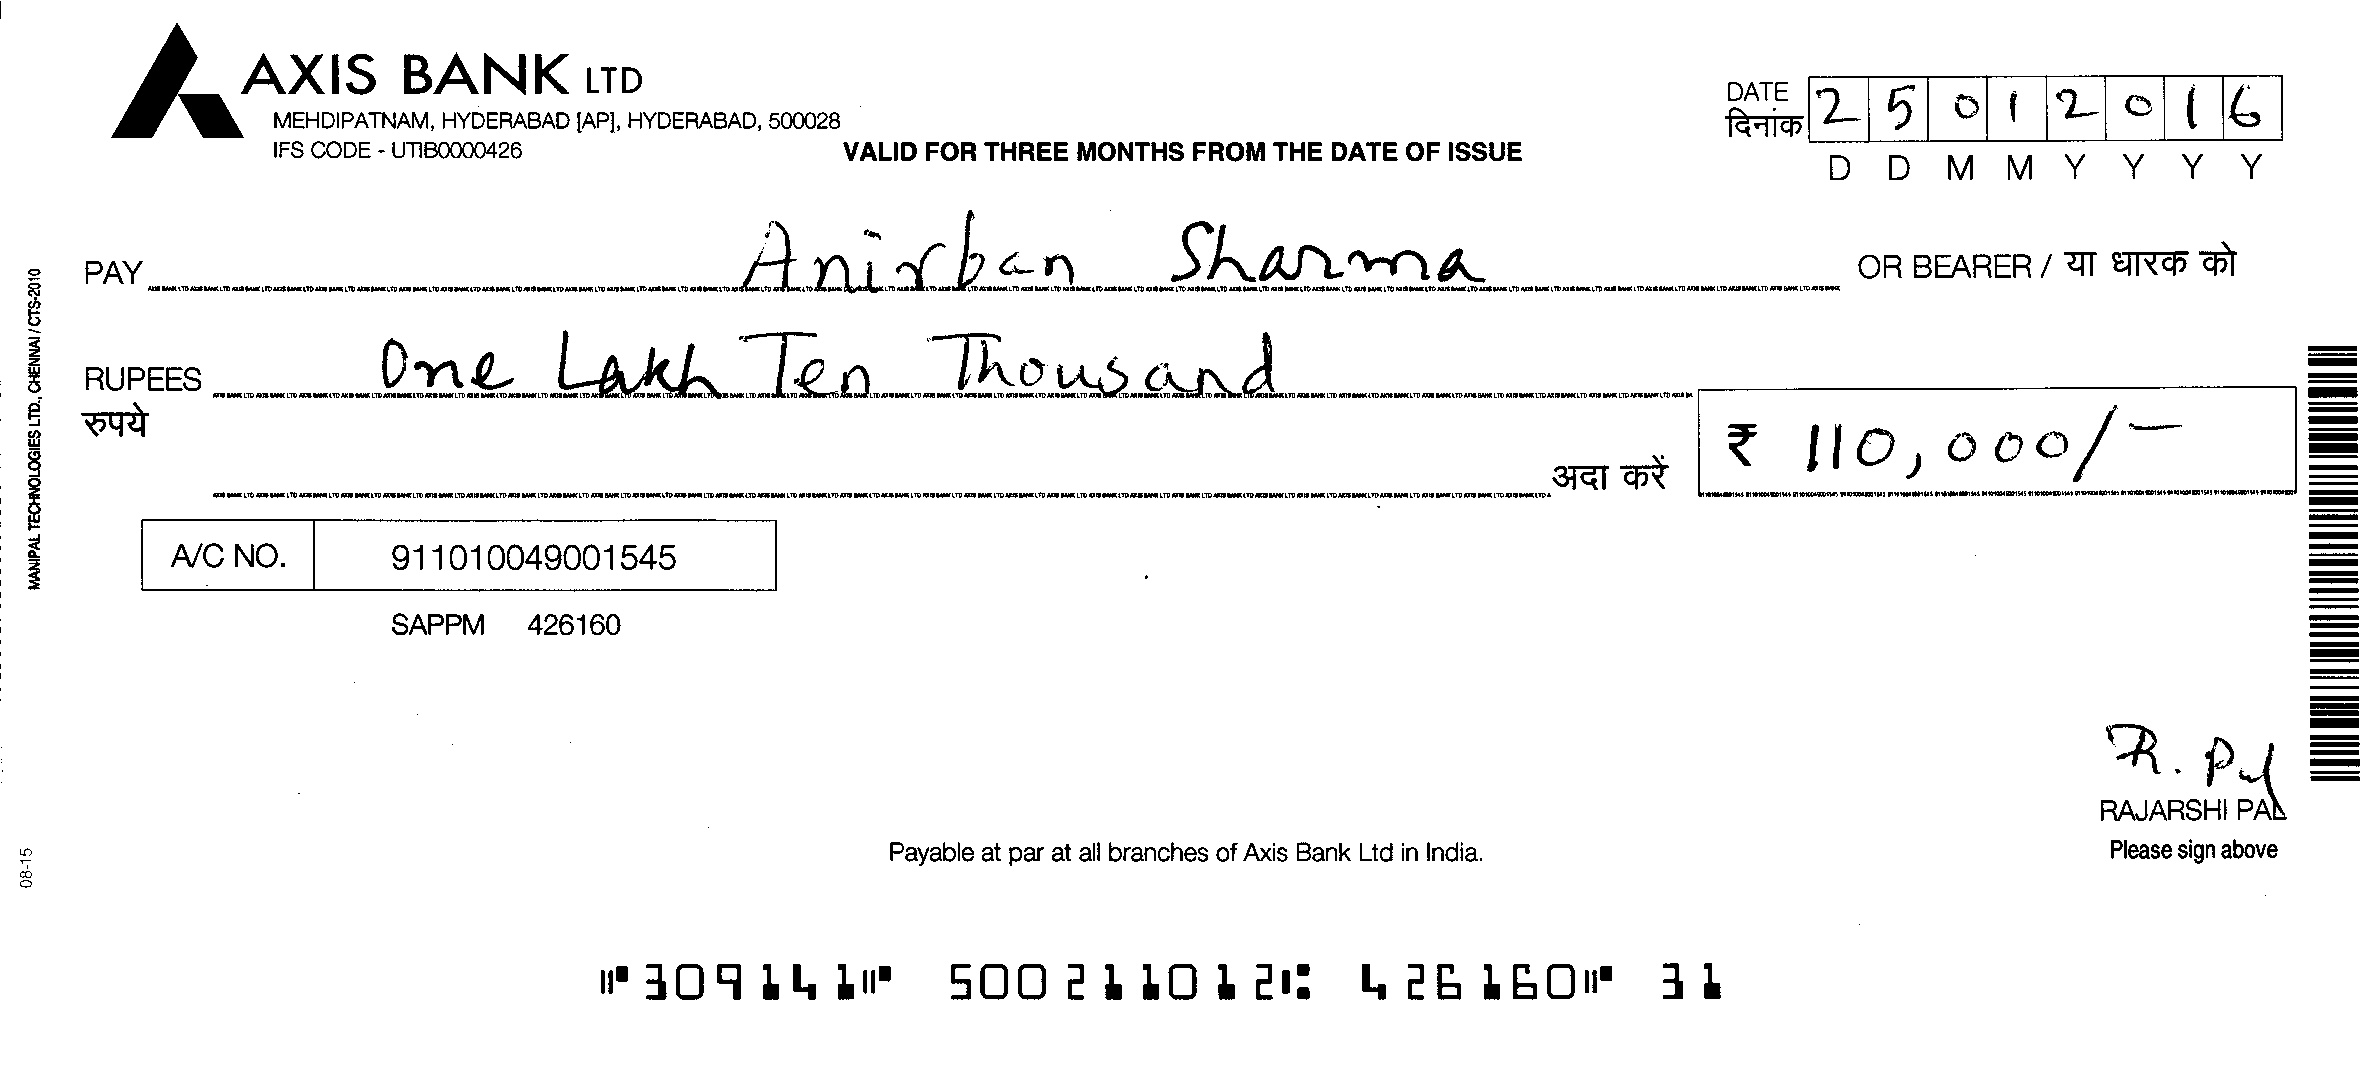 AXIS BANK LTD
MEHDIPATNAM, HYDERABAD [AP], HYDERABAD, 500028
IFS CODE - UTIB0000426
VALID FOR THREE MONTHS FROM THE DATE OF ISSUE
DATE
दिनांक
2 5 0 1 2 0 1 6
D D M M Y Y Y Y
PAY Anirban Sharma OR BEARER / या धारक को
RUPEES One Lakh Ten Thousand
रुपये
अदा करें ₹ 110,000/-
A/C NO. 911010049001545
SAPPM 426160
R. Pal
RAJARSHI PAL
Please sign above
Payable at par at all branches of Axis Bank Ltd in India.
MANIPAL TECHNOLOGIES LTD., CHENNAI / CTS-2010
08-15
⑈309141⑈ 500211012⑆ 426160⑈ 31